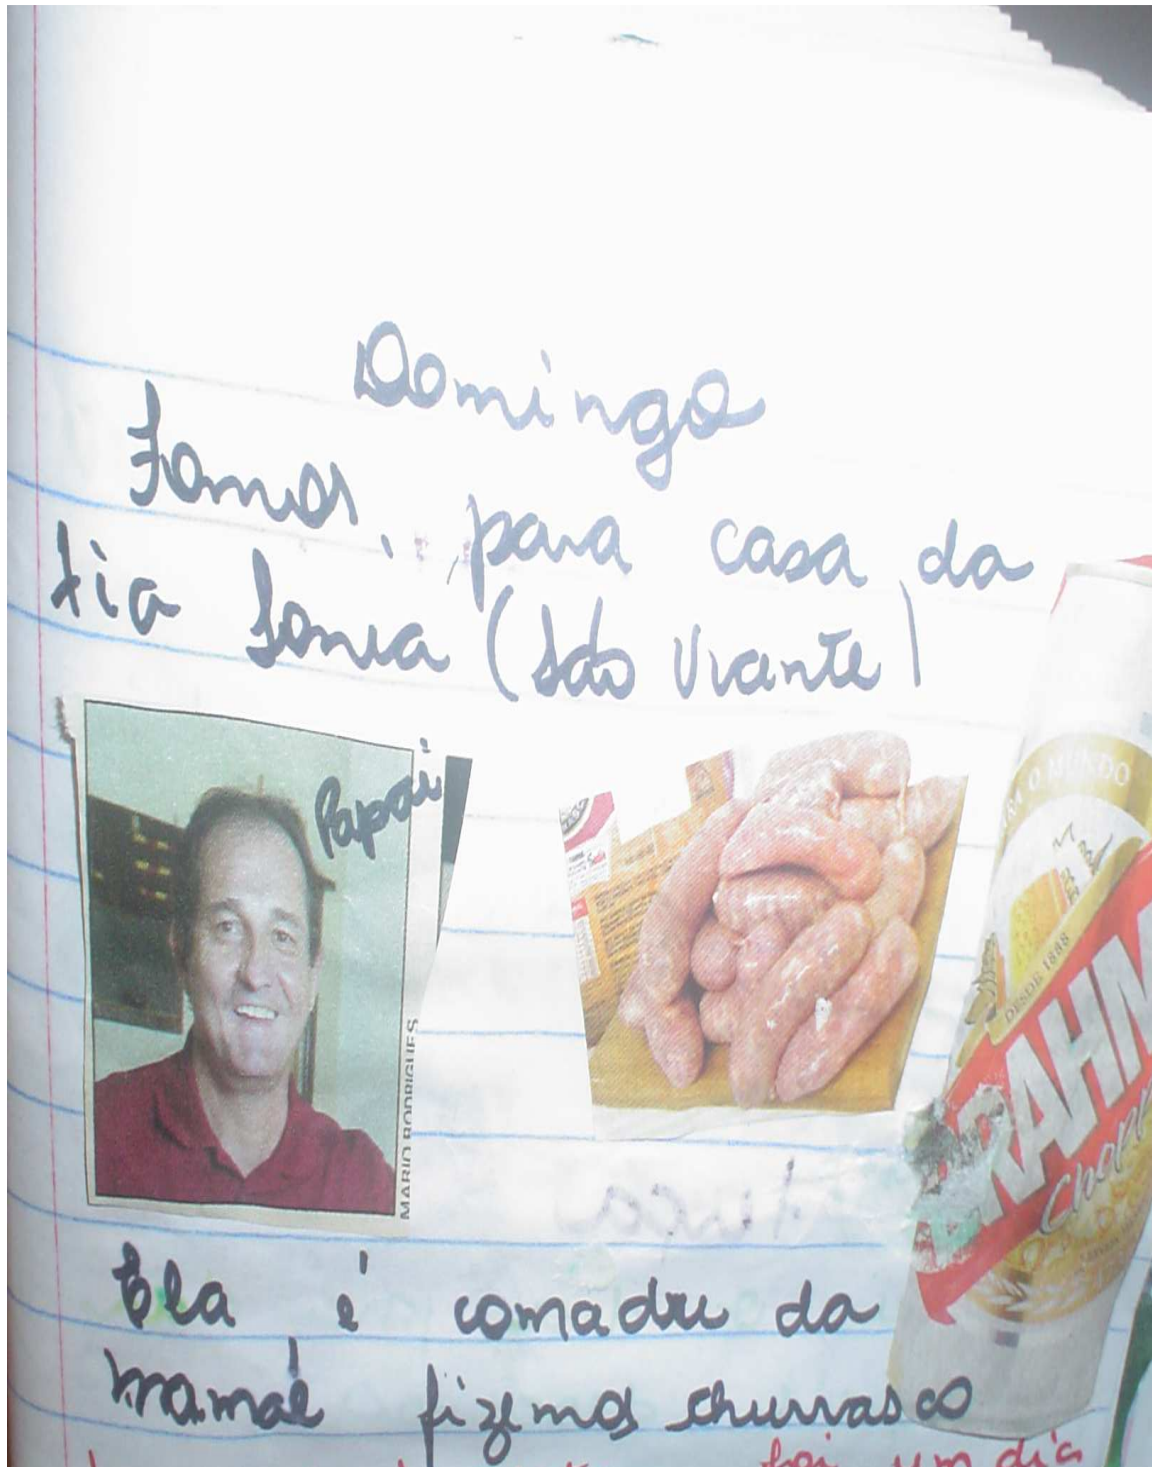 Domingo
Fomos, para casa da
tia Sonia (São Vicente)
Papai
MARIO RODRIGUES
O MUNDO
DESDE 1888
BRAHM
Chopp
Ela é comadre da
mamãe fizemos churrasco
foi um dia